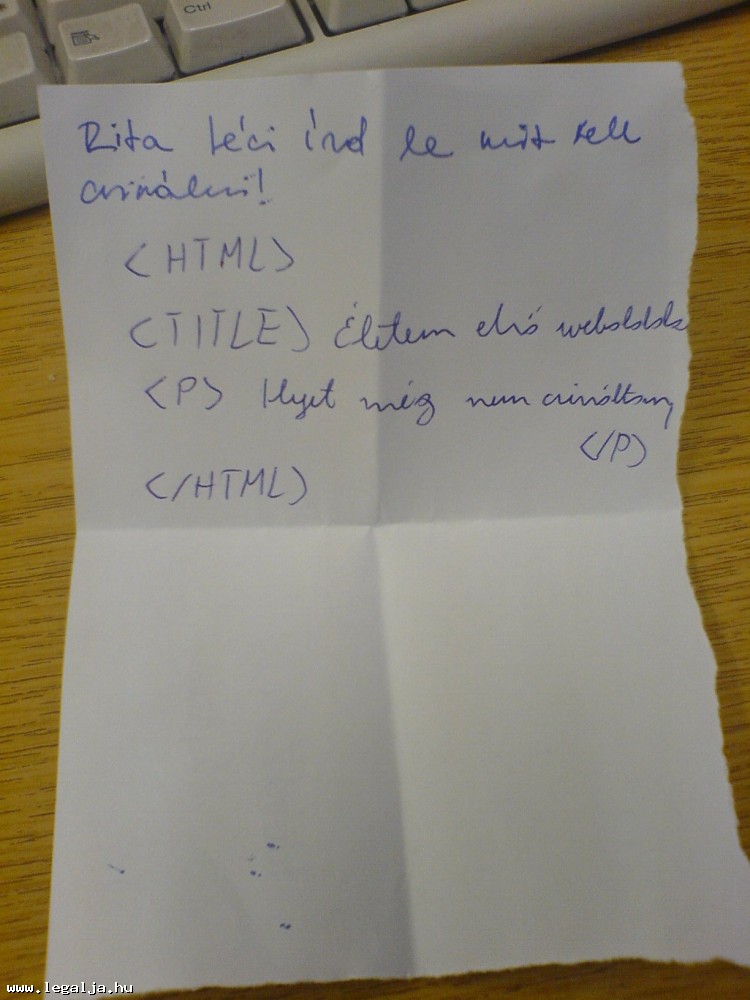 Ctrl
Rita léci írd le mit kell
csinálni!
<HTML>
<TITLE> Életem első weboldala
<P> Ilyet még nem csináltam,
</P>
</HTML>
www.legalja.hu